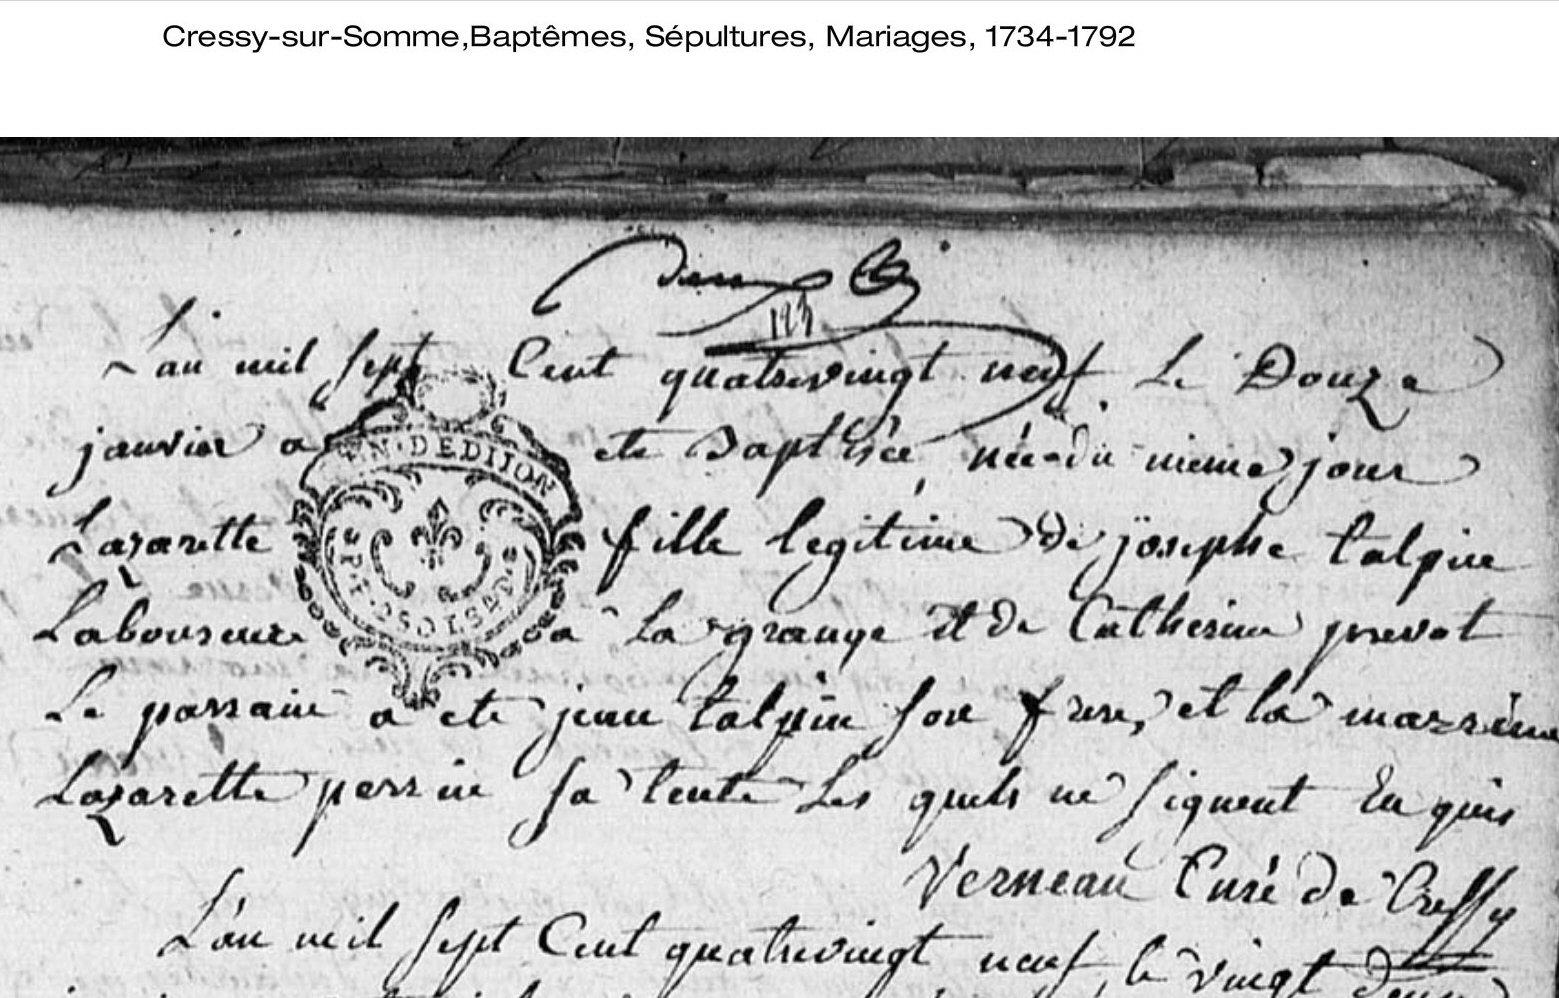 Cressy-sur-Somme,Baptêmes, Sépultures, Mariages, 1734-1792
L'an mil sept Cent quatrevingt neuf Le Douze
janvier a été Baptisée née du meme jour
Lazarette fille legitime de josephe talpin
Laboureur a La grange et de Catherine prevot
Le parrain a ete jean talpin son frere, et la marraine
Lazarette perrin sa tente Les quels ne signent Enquis
Verneau Curé de Cressy
GEN. DE DIJON
L'an mil sept Cent quatrevingt neuf, le vingt deux